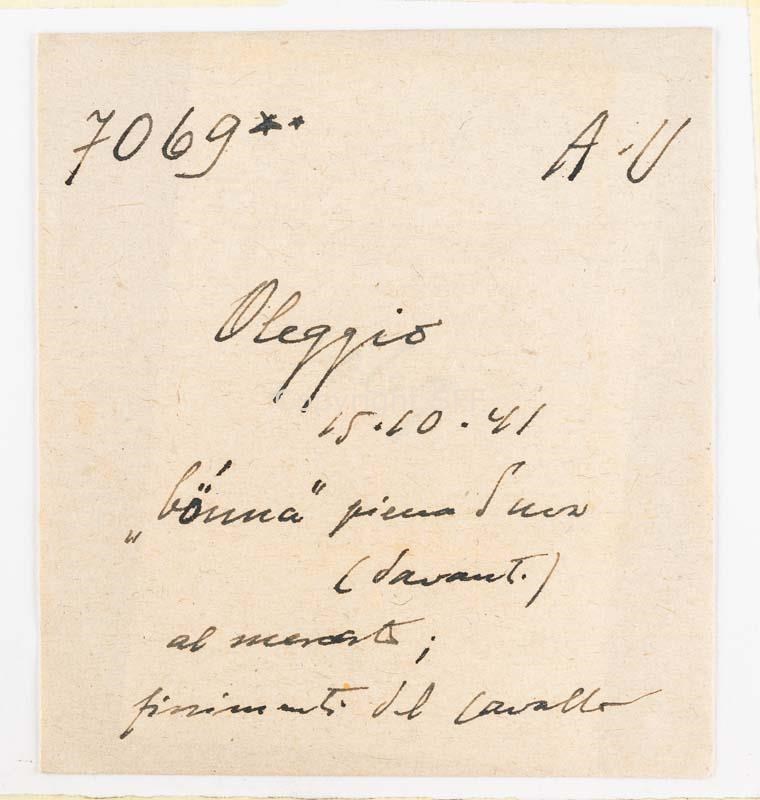 7069** A·U
Oleggio
15·10·41
„bö́nna" piena d'uva
(davant.)
al mercato;
finimenti del cavallo